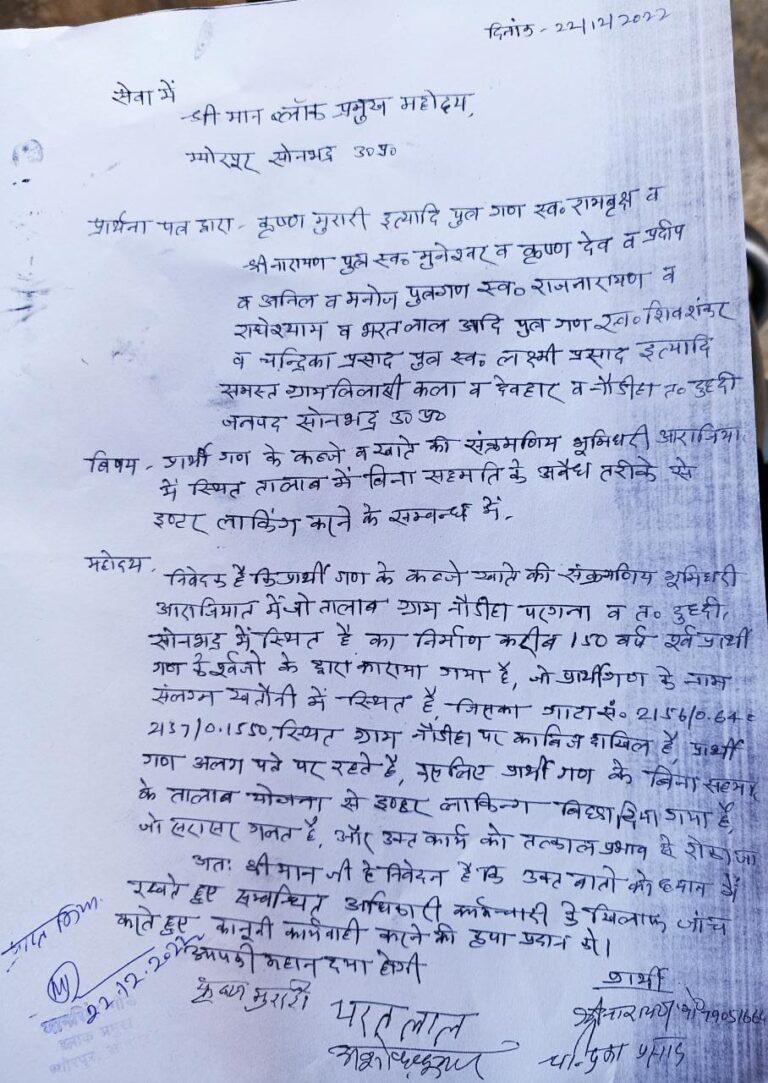 दिनांक - 22/12/2022
सेवा में
श्री मान ब्लॉक प्रमुख महोदय,
म्योरपुर सोनभद्र उ०प्र०
प्रार्थना पत्र द्वारा - कृष्ण मुरारी इत्यादि पुत्र गण स्व० रामबृक्ष व
श्री नारायण पुत्र स्व० मुनेश्वर व कृष्ण देव व प्रदीप
व अनिल व मनोज पुत्रगण स्व० राजनारायण व
राधेश्याम व भरत लाल आदि पुत्र गण स्व० शिवशंकर
व चन्द्रिका प्रसाद पुत्र स्व० लक्ष्मी प्रसाद इत्यादि
समस्त ग्राम कला व देवहार व नौडीहा त० दुद्धी
जनपद सोनभद्र उ० प्र०
विषय - प्रार्थी गण के कब्जे व खाते की संक्रमणिय भूमिधरी
में स्थित तालाब में बिना सहमति के अवैध तरीके से
इण्टर लाकिंग करने के सम्बन्ध में -
महोदय,
निवेदन है कि प्रार्थी गण के कब्जे खाते की संक्रमणिय भूमिधरी
आराजियात में जो तालाब ग्राम नौडीहा परगना व त० दुद्धी,
सोनभद्र में स्थित है का निर्माण करीब 150 वर्ष पूर्व प्रार्थी
गण के पूर्वजो के द्वारा कराया गया है, जो प्रार्थीगण के नाम
संलग्न खतौनी में स्थित है, जिसका गाटा सं० 2156/0.64
2137/0.1550, स्थित ग्राम नौडीहा पर काबिज दाखिल है, प्रार्थी
गण अलग पते पर रहते है, इस लिए प्रार्थी गण के बिना
के तालाब योजना से इण्टर लाकिन्ग बिछा दिया गया है,
जो सरासर गलत है, और उक्त कार्य को तत्काल प्रभाव से रोका जा
अतः श्री मान जी से निवेदन है कि उक्त बातो को ध्यान में
रखते हुए सम्बन्धित अधिकारी कर्मचारी के खिलाफ जांच
करते हुए कानूनी कार्यवाही करने की कृपा प्रदान करे।
आपकी महान दया होगी
प्रार्थी
22.12.2022
कृष्ण मुरारी
भरत लाल
श्री नारायण
चन्द्रिका प्रसाद
ब्लाक प्रमुख